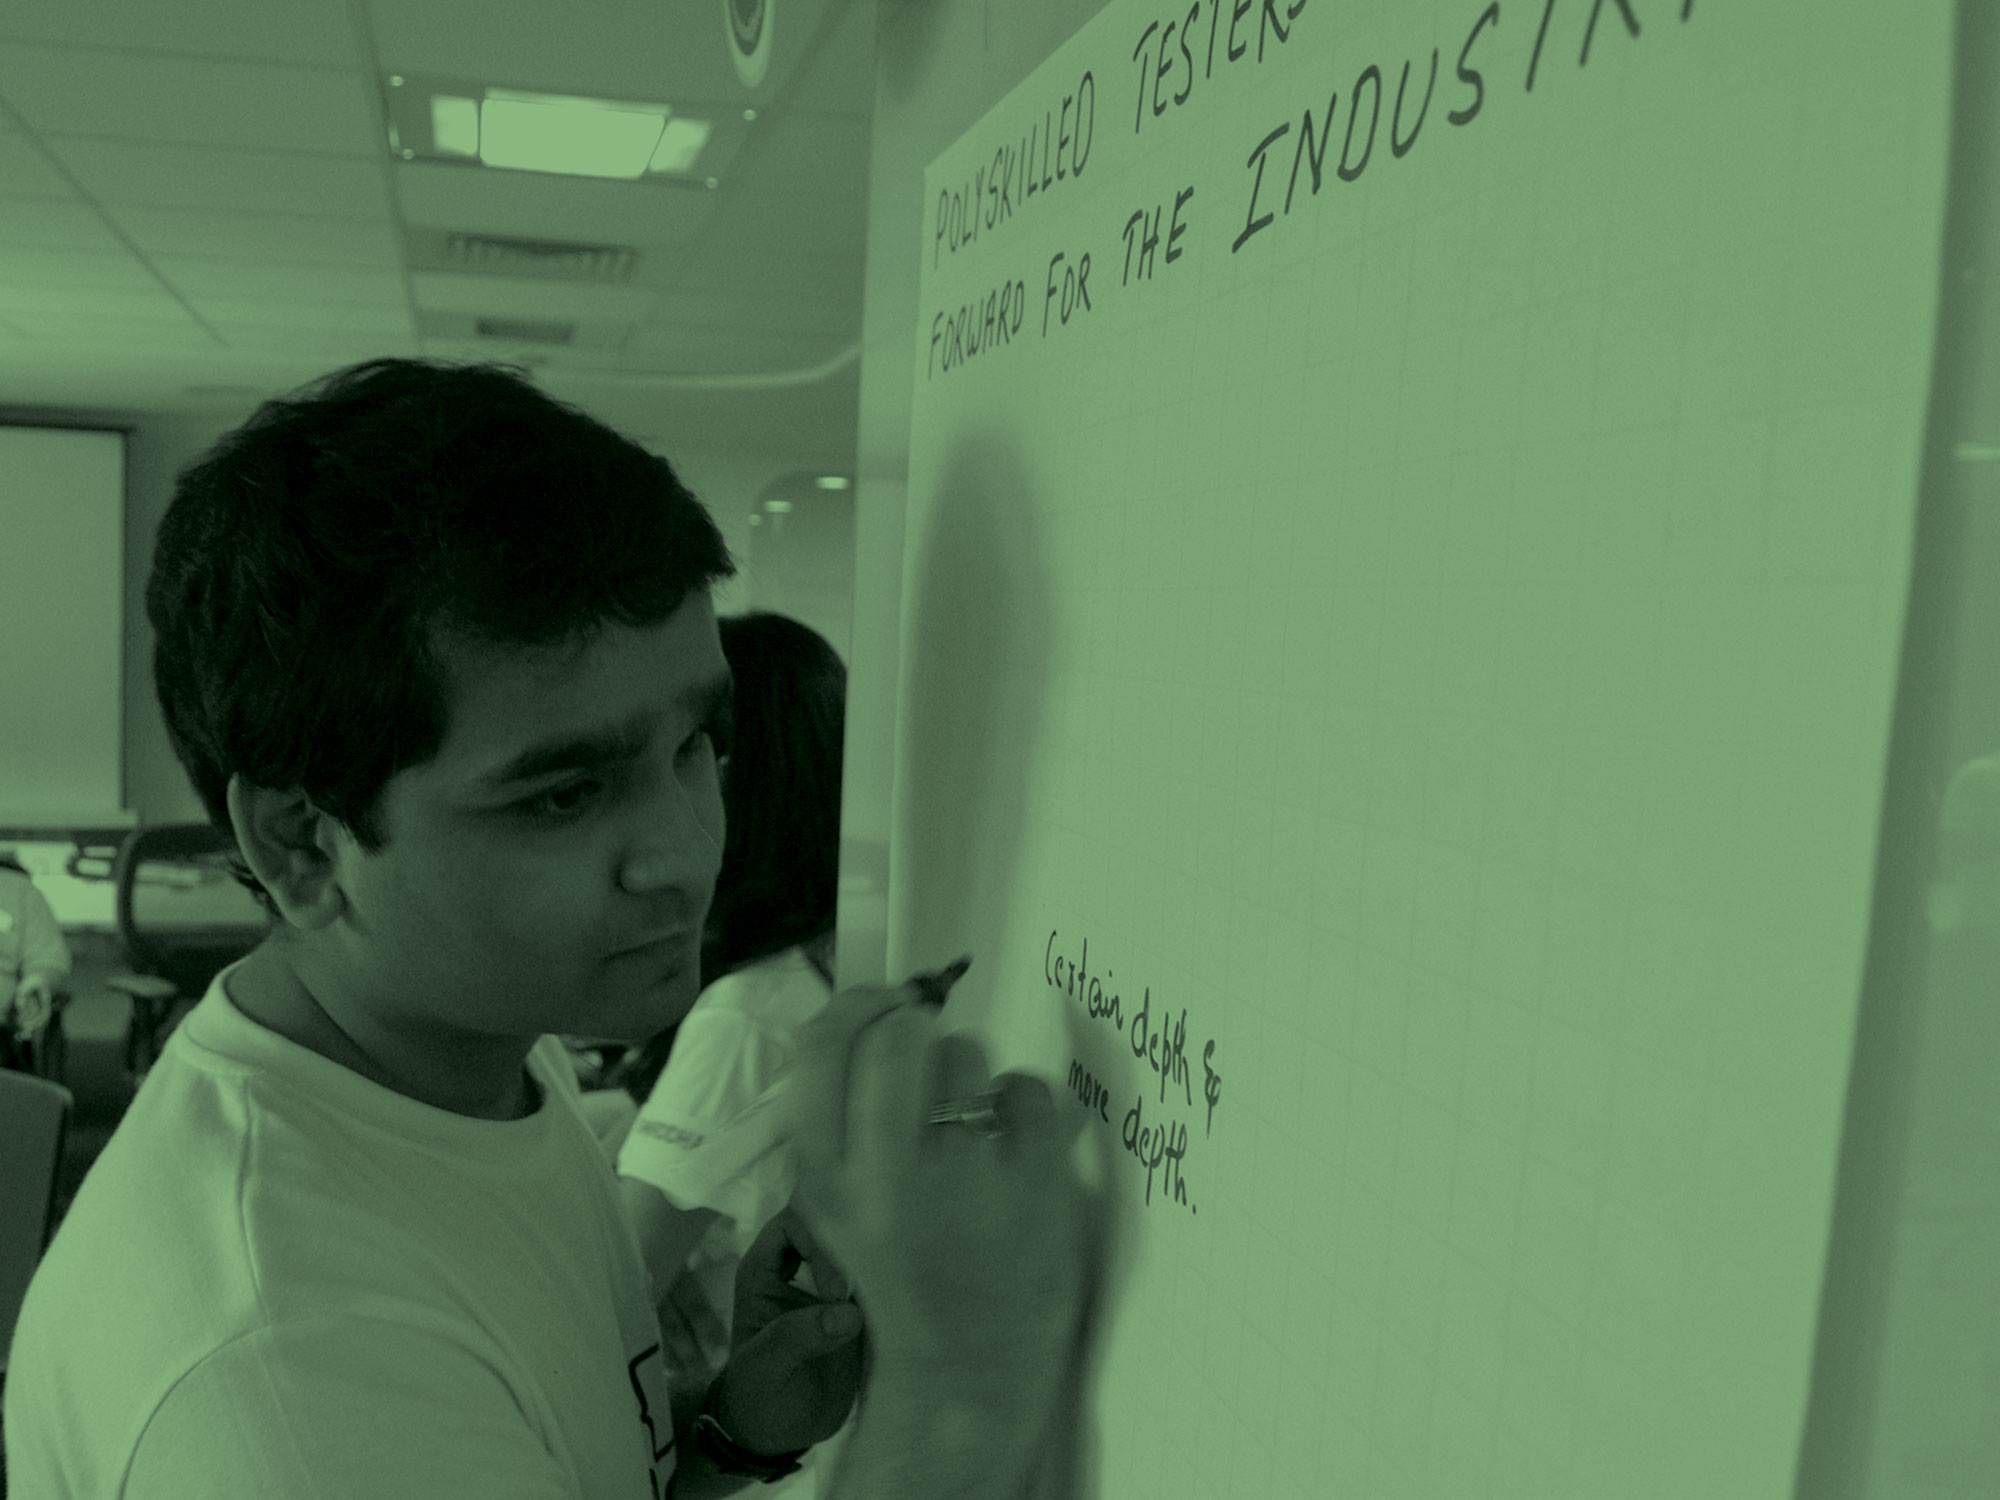 POLYSKILLED TESTERS
FORWARD FOR THE INDUSTRY
Certain depth &
more depth.